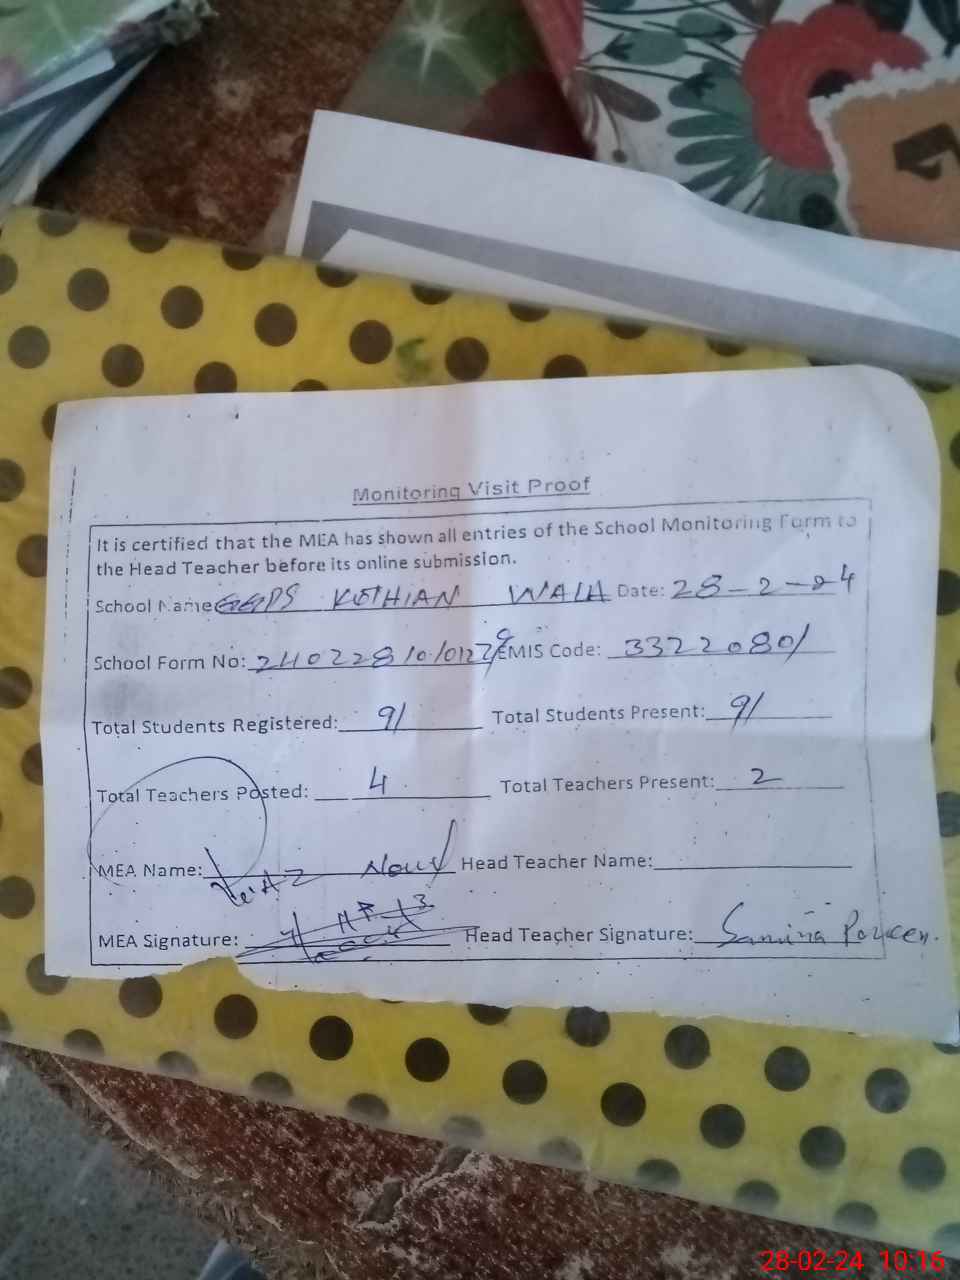 Monitoring Visit Proof
It is certified that the MEA has shown all entries of the School Monitoring Form to
the Head Teacher before its online submission.
School Name KOTHIAN WALA Date: 28-2-24
School Form No: EMIS Code: 33220801
Total Students Registered: 91 Total Students Present: 91
Total Teachers Posted: 4 Total Teachers Present: 2
MEA Name: Head Teacher Name:
MEA Signature: Head Teacher Signature: Samina Parveen.
28-02-24 10:16